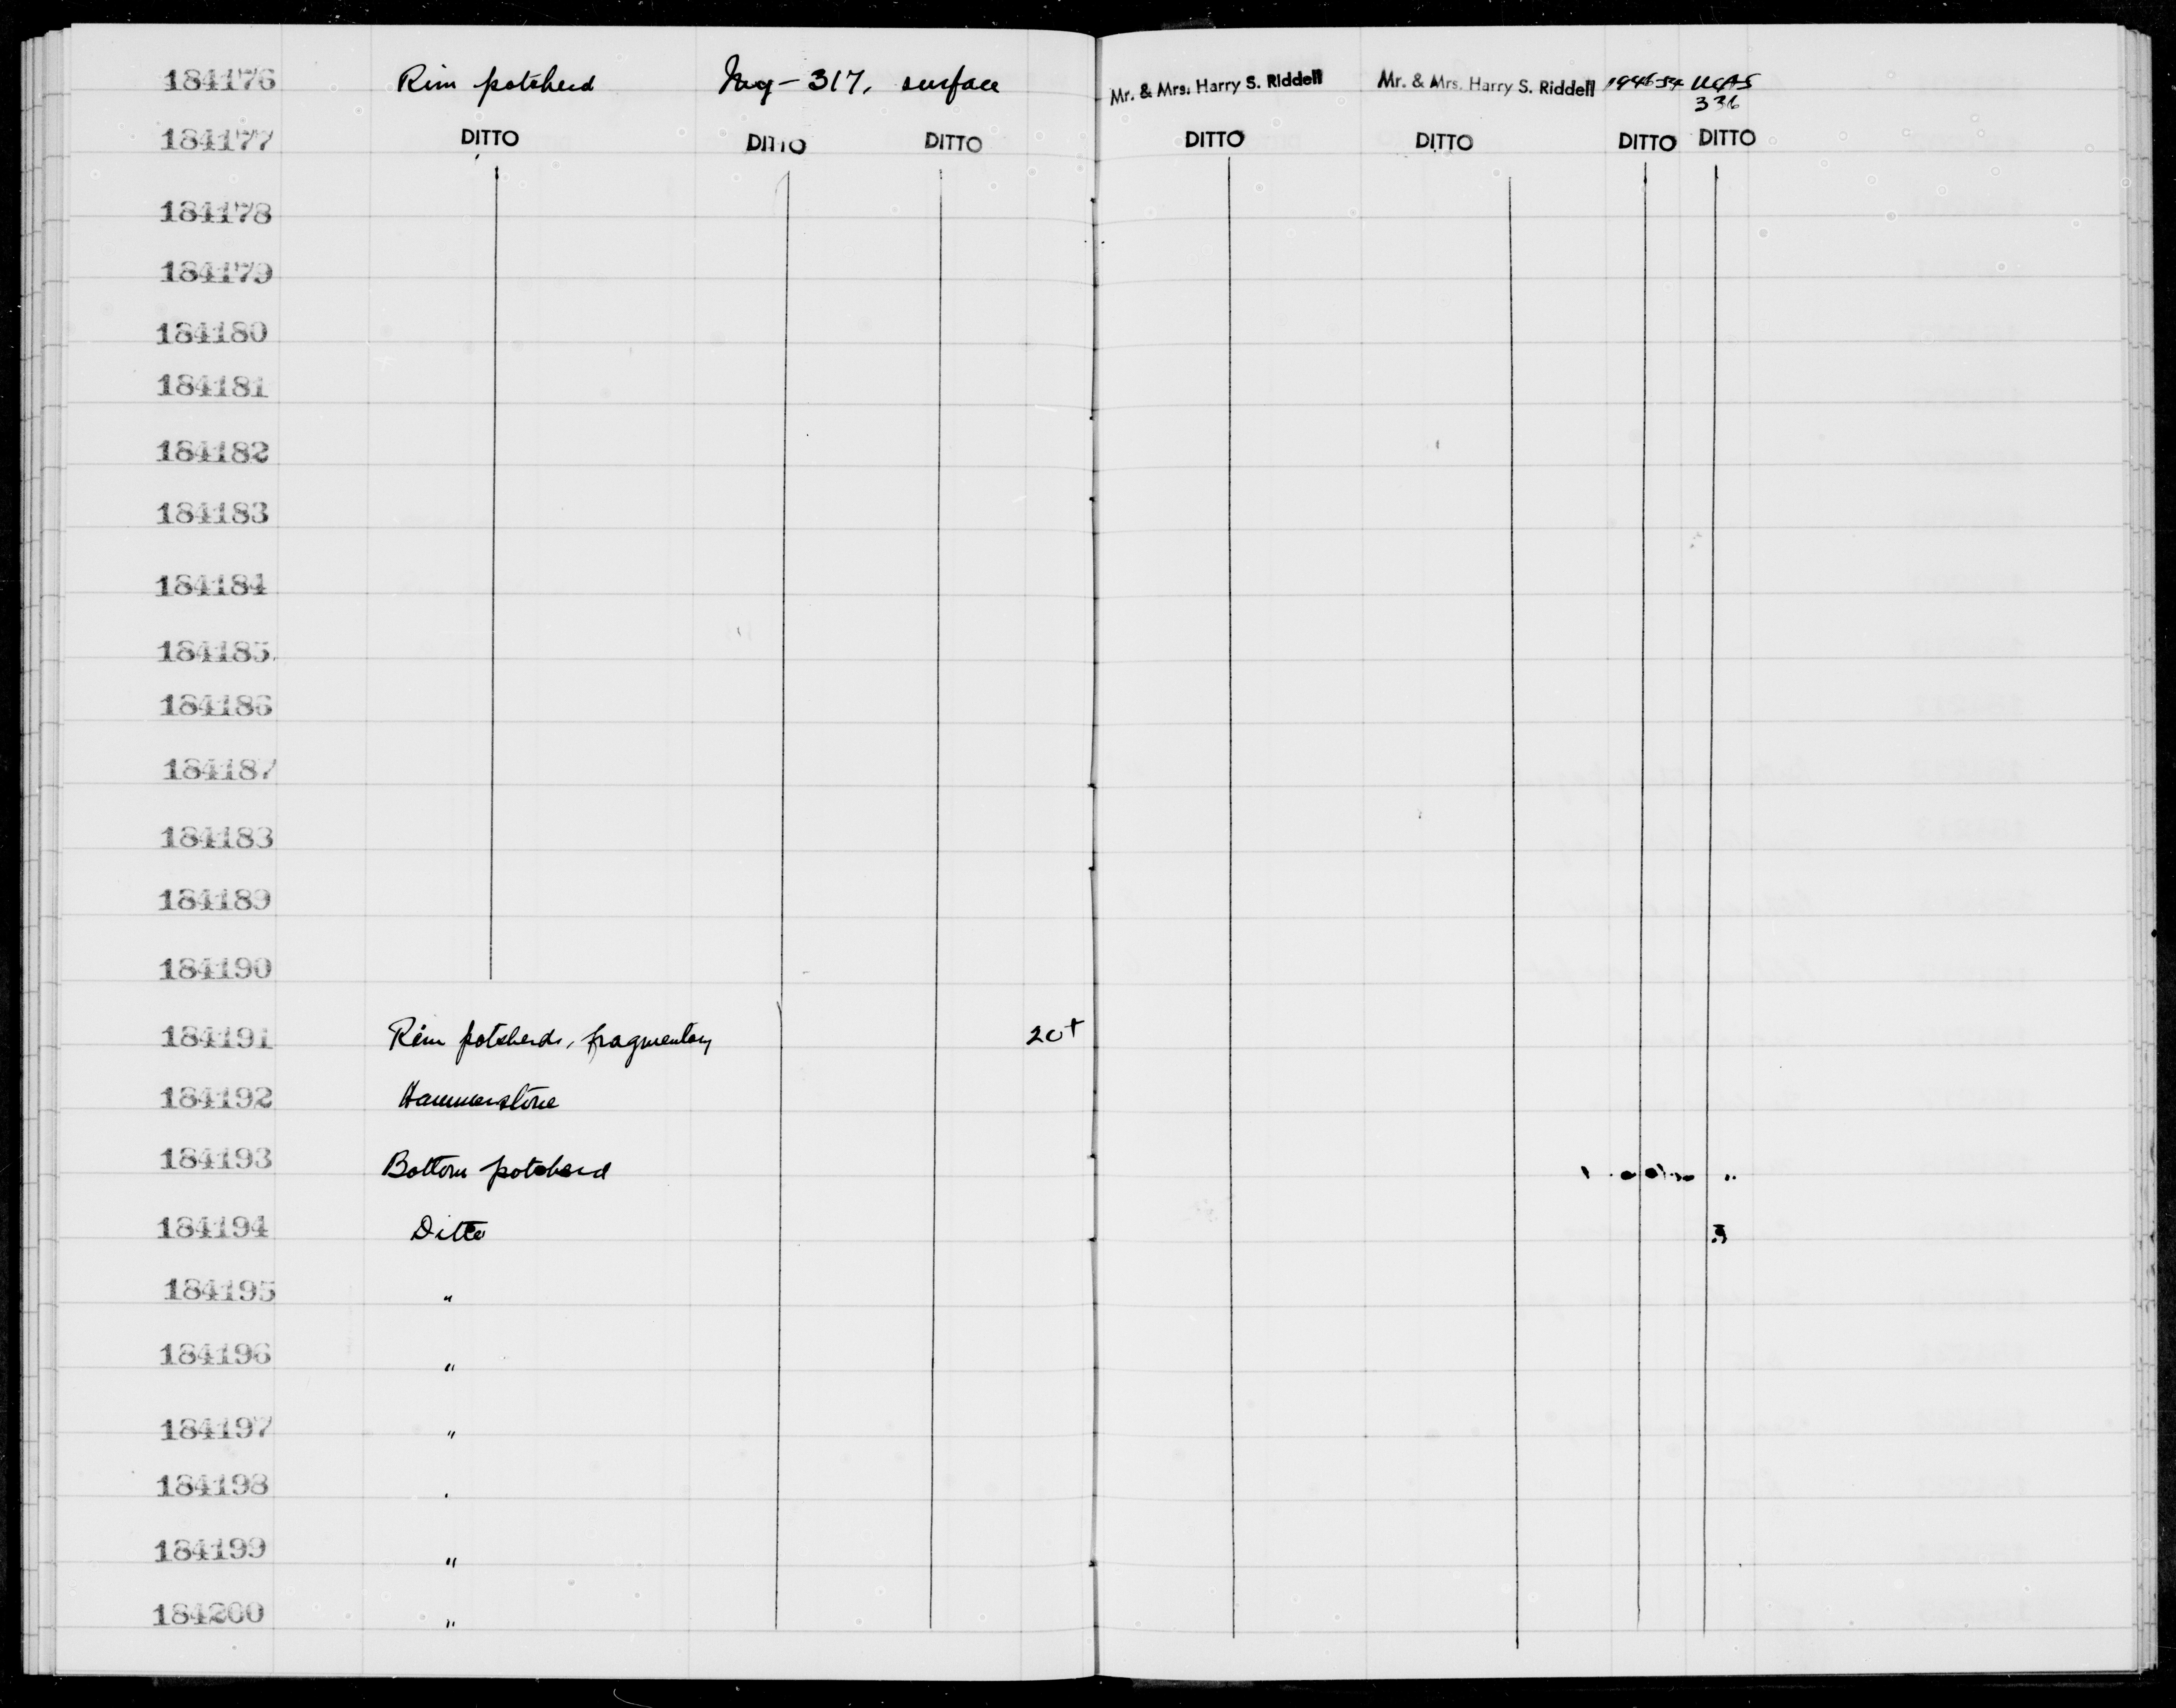 184176 Rim potsherd Iny-317, surface Mr. & Mrs. Harry S. Riddell Mr. & Mrs. Harry S. Riddell UCAS
336
184177 DITTO DITTO DITTO DITTO DITTO DITTO DITTO
184178
184179
184180
184181
184182
184183
184184
184185
184186
184187
184188
184189
184190
184191 Rim potsherds, fragmentary 20+
184192 Hammerstone
184193 Bottom potsherd
184194 Ditto
184195 "
184196 "
184197 "
184198
184199 "
184200 "